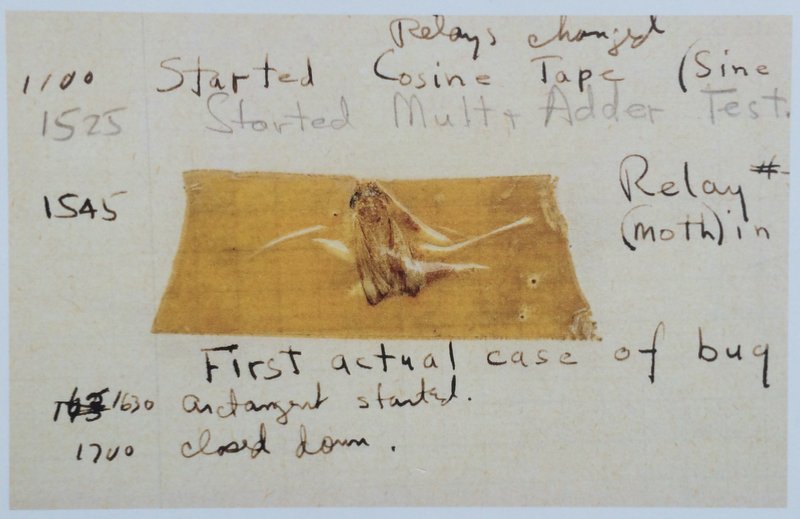 Relays changed
1100 Started Cosine Tape (Sine
1525 Started Mult + Adder Test.
1545 Relay #
(moth) in
First actual case of bug
1630 arctangent started.
1700 closed down.